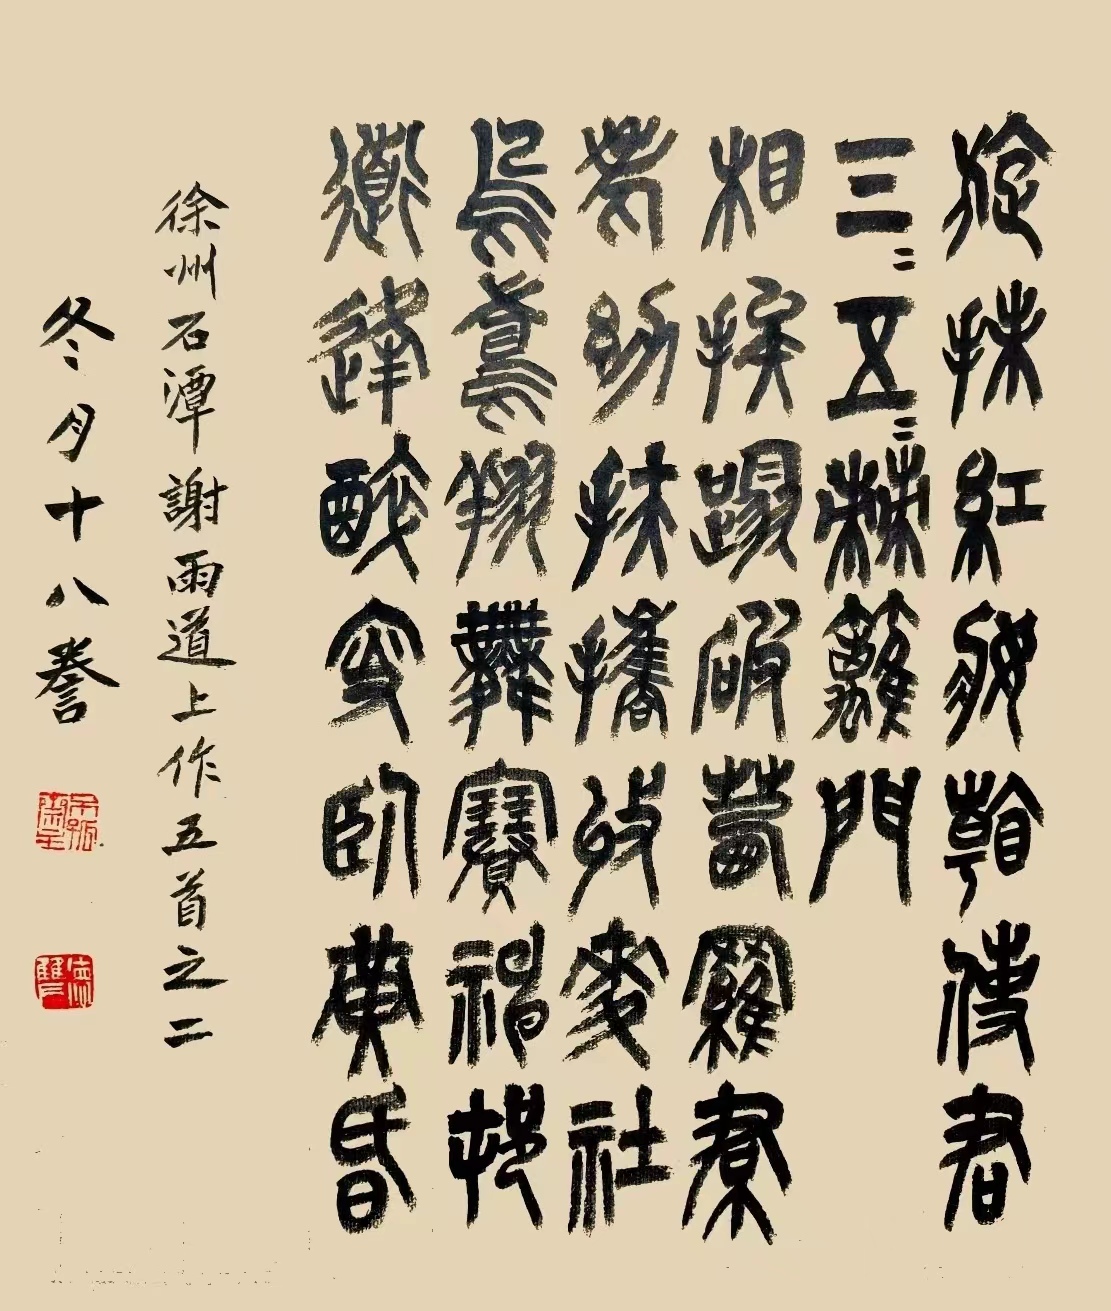 旋抹紅妝看使君
三〻五〻棘籬門
相挨蹋破蒨羅帬
老幼扶攜收麥社
烏鳶翔舞賽神邨
道逢醉叟臥黃昏
徐州石潭謝雨道上作五首之二
冬月十八誊